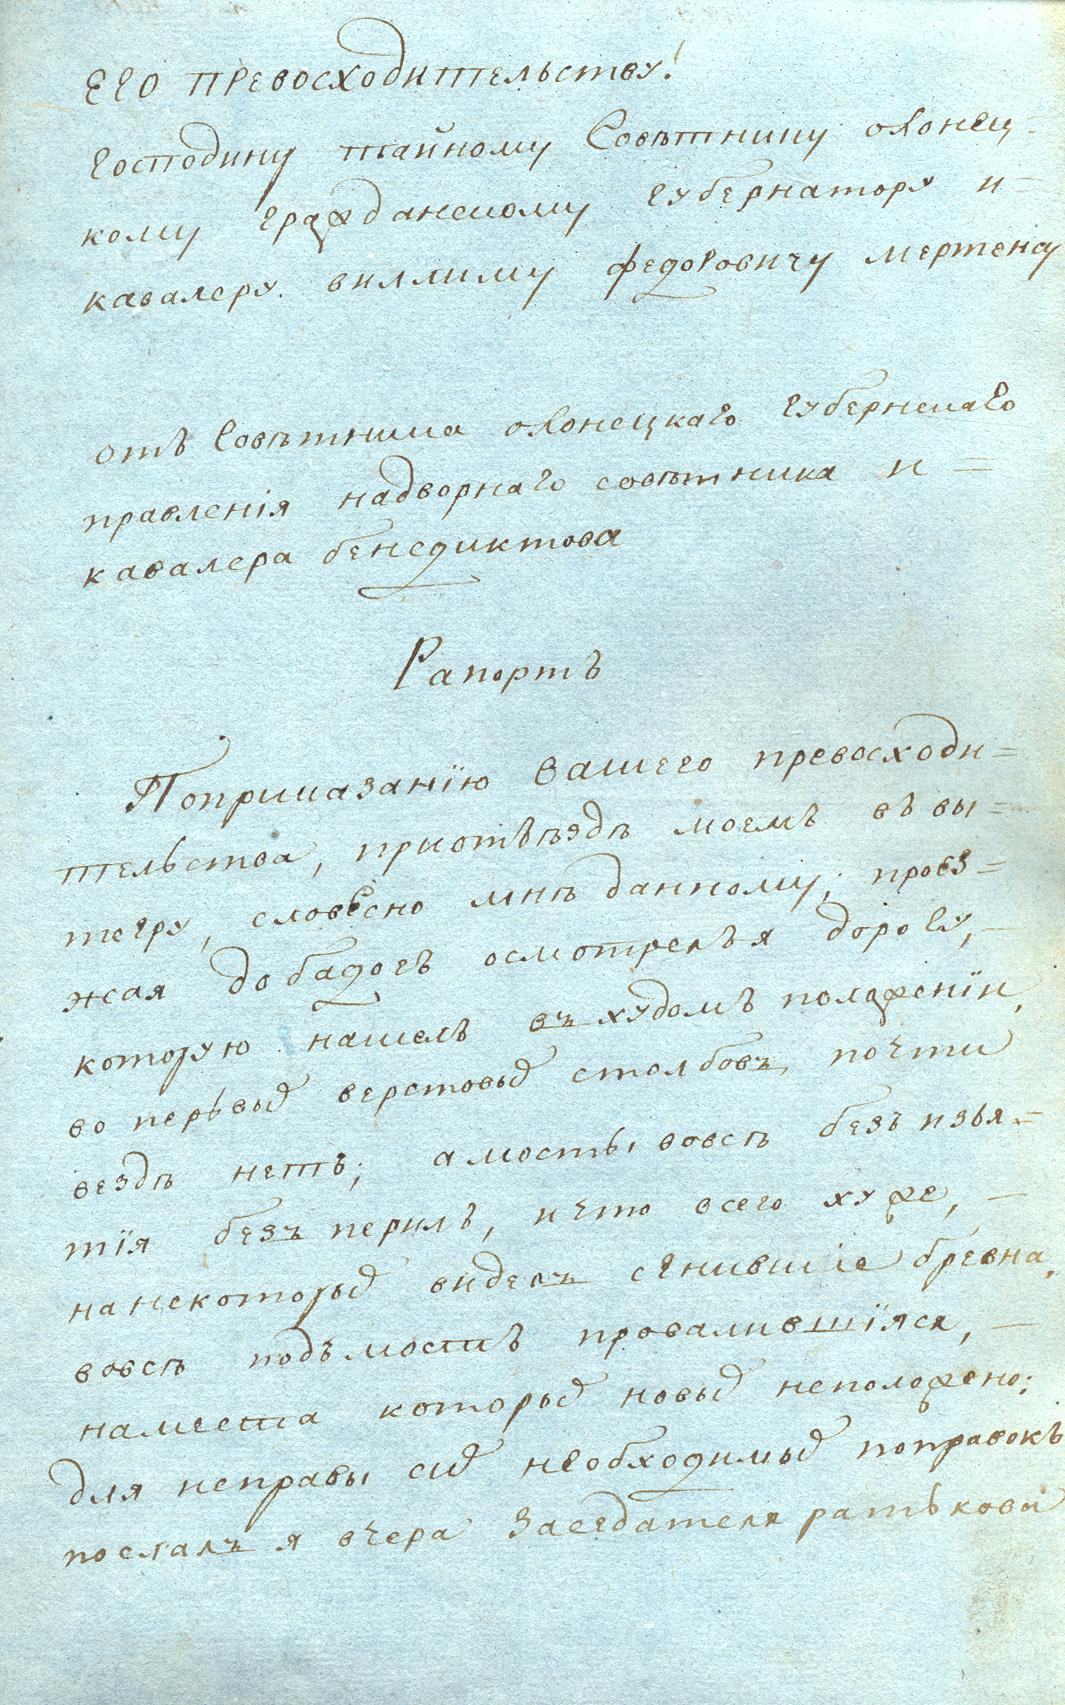 Его превосходительству!
Господину тайному Совѣтнику олонец-
кому гражданскому губернатору и=
кавалеру виллиму федоровичу мертенсу
отъ Совѣтника олонецкаго губернскаго
правленія надворнаго совѣтника и =
кавалера бенедиктова
Рапортъ
Поприказанїю вашего превосходи=
тельства, приотъѣздѣ моемъ въ вы=
тегру, словесно мнѣ данному; проез=
жая до бадогъ осмотрелъ я дорогу, —
которую нашелъ въ худомъ положенїи,
во первыѣ верстовыѣ столбовъ, почти
вездѣ нетъ; а мосты вовсѣ безъ изъя=
тїя безъ перилъ, ичто всего хуже, —
нанекоторыѣ виделъ сгнившіе бревна,
вовсѣ подъ мостъ провалившїяся, —
наместа которыѣ новыѣ неположено:
для исправы сиѣ необходимыѣ поправокъ
послалъ я вчера Заседателя ратькова